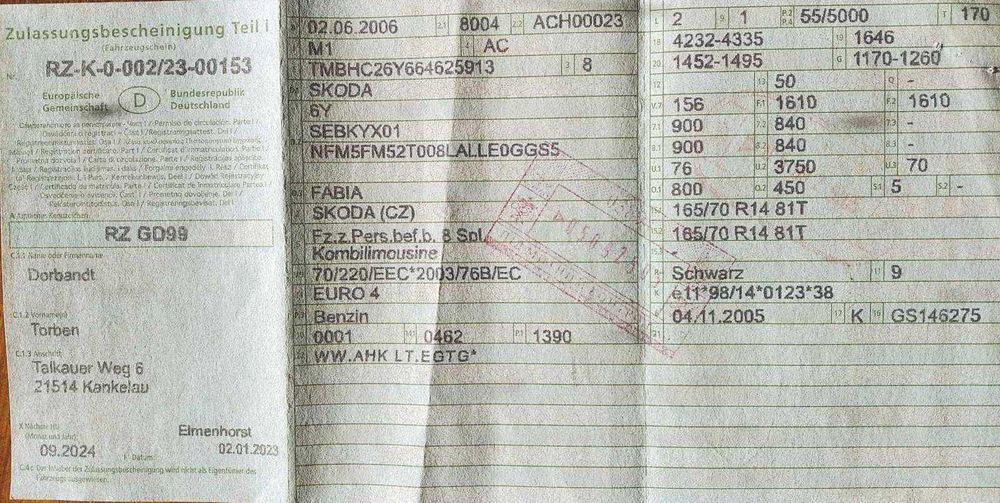 Zulassungsbescheinigung Teil I
(Fahrzeugschein)
Nr. RZ-K-0-002/23-00153
Europäische Gemeinschaft
D
Bundesrepublik Deutschland
A Amtliches Kennzeichen
RZ GD99
C.1.1 Name oder Firmenname
Dorbandt
C.1.2 Vorname(n)
Torben
C.1.3 Anschrift
Talkauer Weg 6
21514 Kankelau
X Nächste HU
(Monat und Jahr)
09.2024
Elmenhorst
I Datum: 02.01.2023
C.4c Der Inhaber der Zulassungsbescheinigung wird nicht als Eigentümer des
Fahrzeugs ausgewiesen.
B 02.06.2006 2.1 8004 2.2 ACH00023
J M1 4 AC
E TMBHC26Y664625913 3 8
SKODA
6Y
SEBKYX01
NFM5FM52T008LALLE0GGS5
FABIA
SKODA (CZ)
Fz.z.Pers.bef.b. 8 Spl.
Kombilimousine
70/220/EEC*2003/76B/EC
EURO 4
Benzin
0001 0462 P.1 1390
WW.AHK LT.EGTG*
L 2 9 1 P.2 P.4 55/5000 T 170
18 4232-4335 19 1646
20 1452-1495 G 1170-1260
13 50 Q -
V.7 156 F.1 1610 F.2 1610
7.1 900 7.2 840 7.3 -
8.1 900 8.2 840 8.3 -
U.1 76 U.2 3750 U.3 70
O.1 800 O.2 450 S.1 5 S.2 -
15.1 165/70 R14 81T
15.2 165/70 R14 81T
R Schwarz 11 9
K e11*98/14*0123*38
6 04.11.2005 17 K 16 GS146275
21